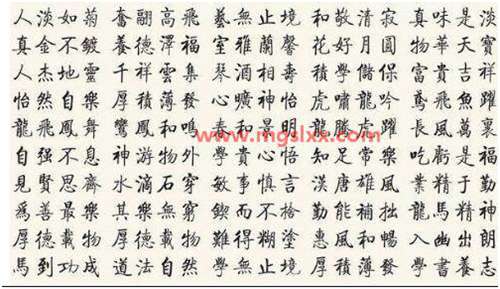 人淡如菊 奮翮高飛 藝無止境 和敬清寂 真味是淡
真金不鍍 養德澤福 室雅蘭馨 花好月圓 物華天寶
人杰地靈 千祥雲集 琴酒相壽 積學儲保 富貴吉祥
怡然自樂 厚積薄發 心曠神怡 虎嘯龍吟 鳶飛魚躍
龍飛鳳舞 鸞鳳和鳴 春和景明 龍騰虎躍 長風萬裏
www.mgslxx.com
自强不息 神游物外 學貴心悟 知足常樂 吃虧是福
見賢思齊 水滴石穿 敏事慎言 漢唐雄風 業精于勤
爲善最樂 其樂無窮 學而不捨 勤能補拙 龍馬精神
厚德載物 厚德載物 難得糊塗 惠風和暢 入幽出朗
馬到功成 道法自然 學無止境 厚積薄發 學書養志